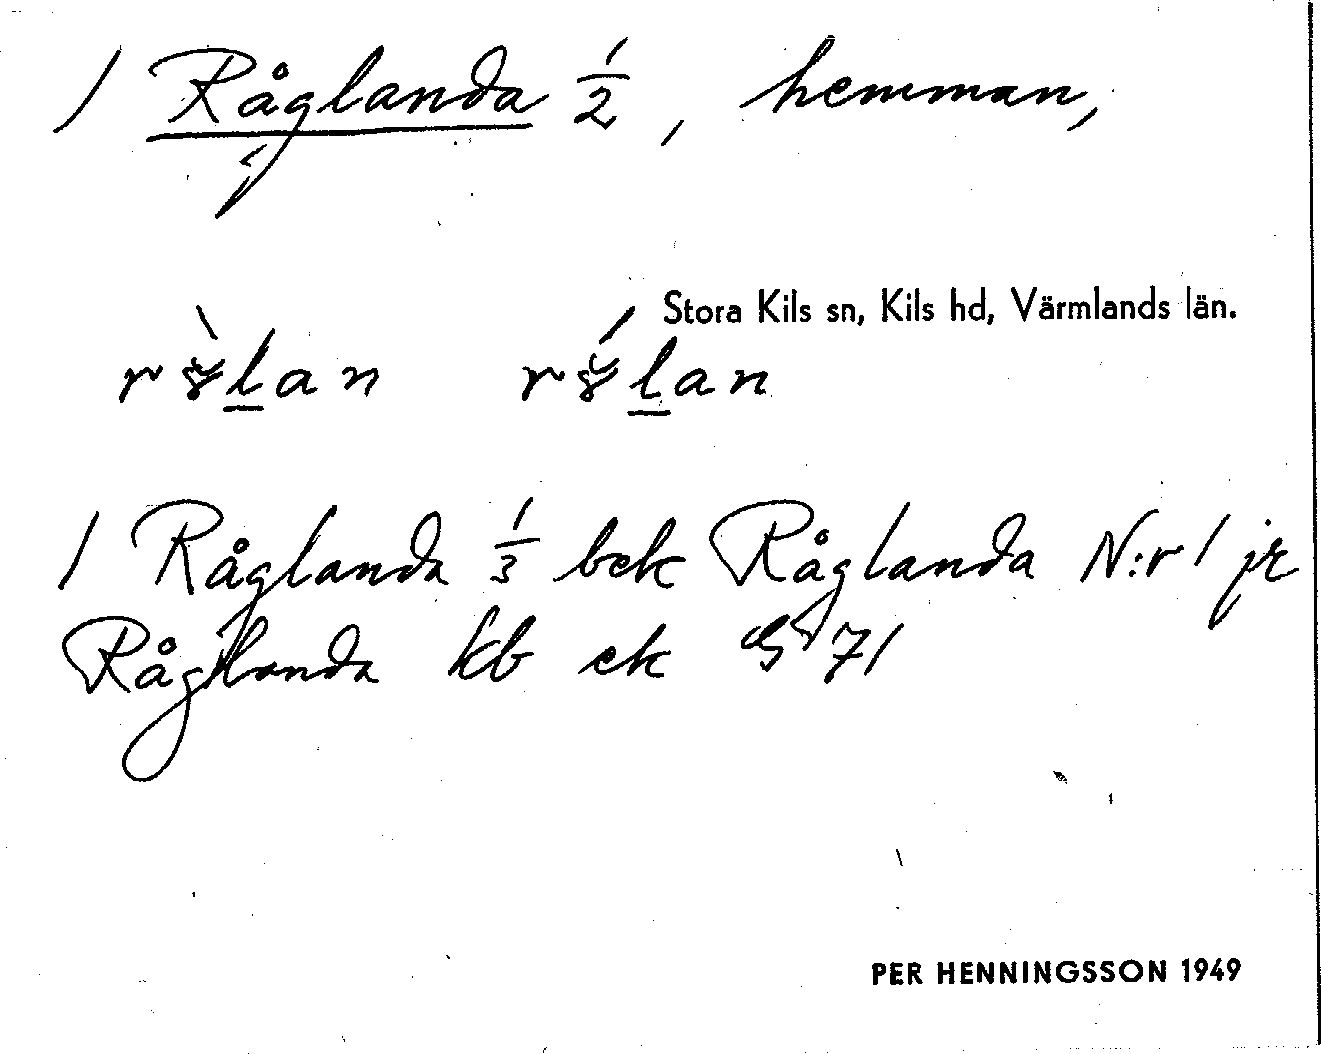 1 Råglanda 1/2, hemman,
Stora Kils sn, Kils hd, Värmlands län.
1 Råglanda 1/3 bek Råglanda N:r 1 jr
Råglanda kb ek G 71
PER HENNINGSSON 1949